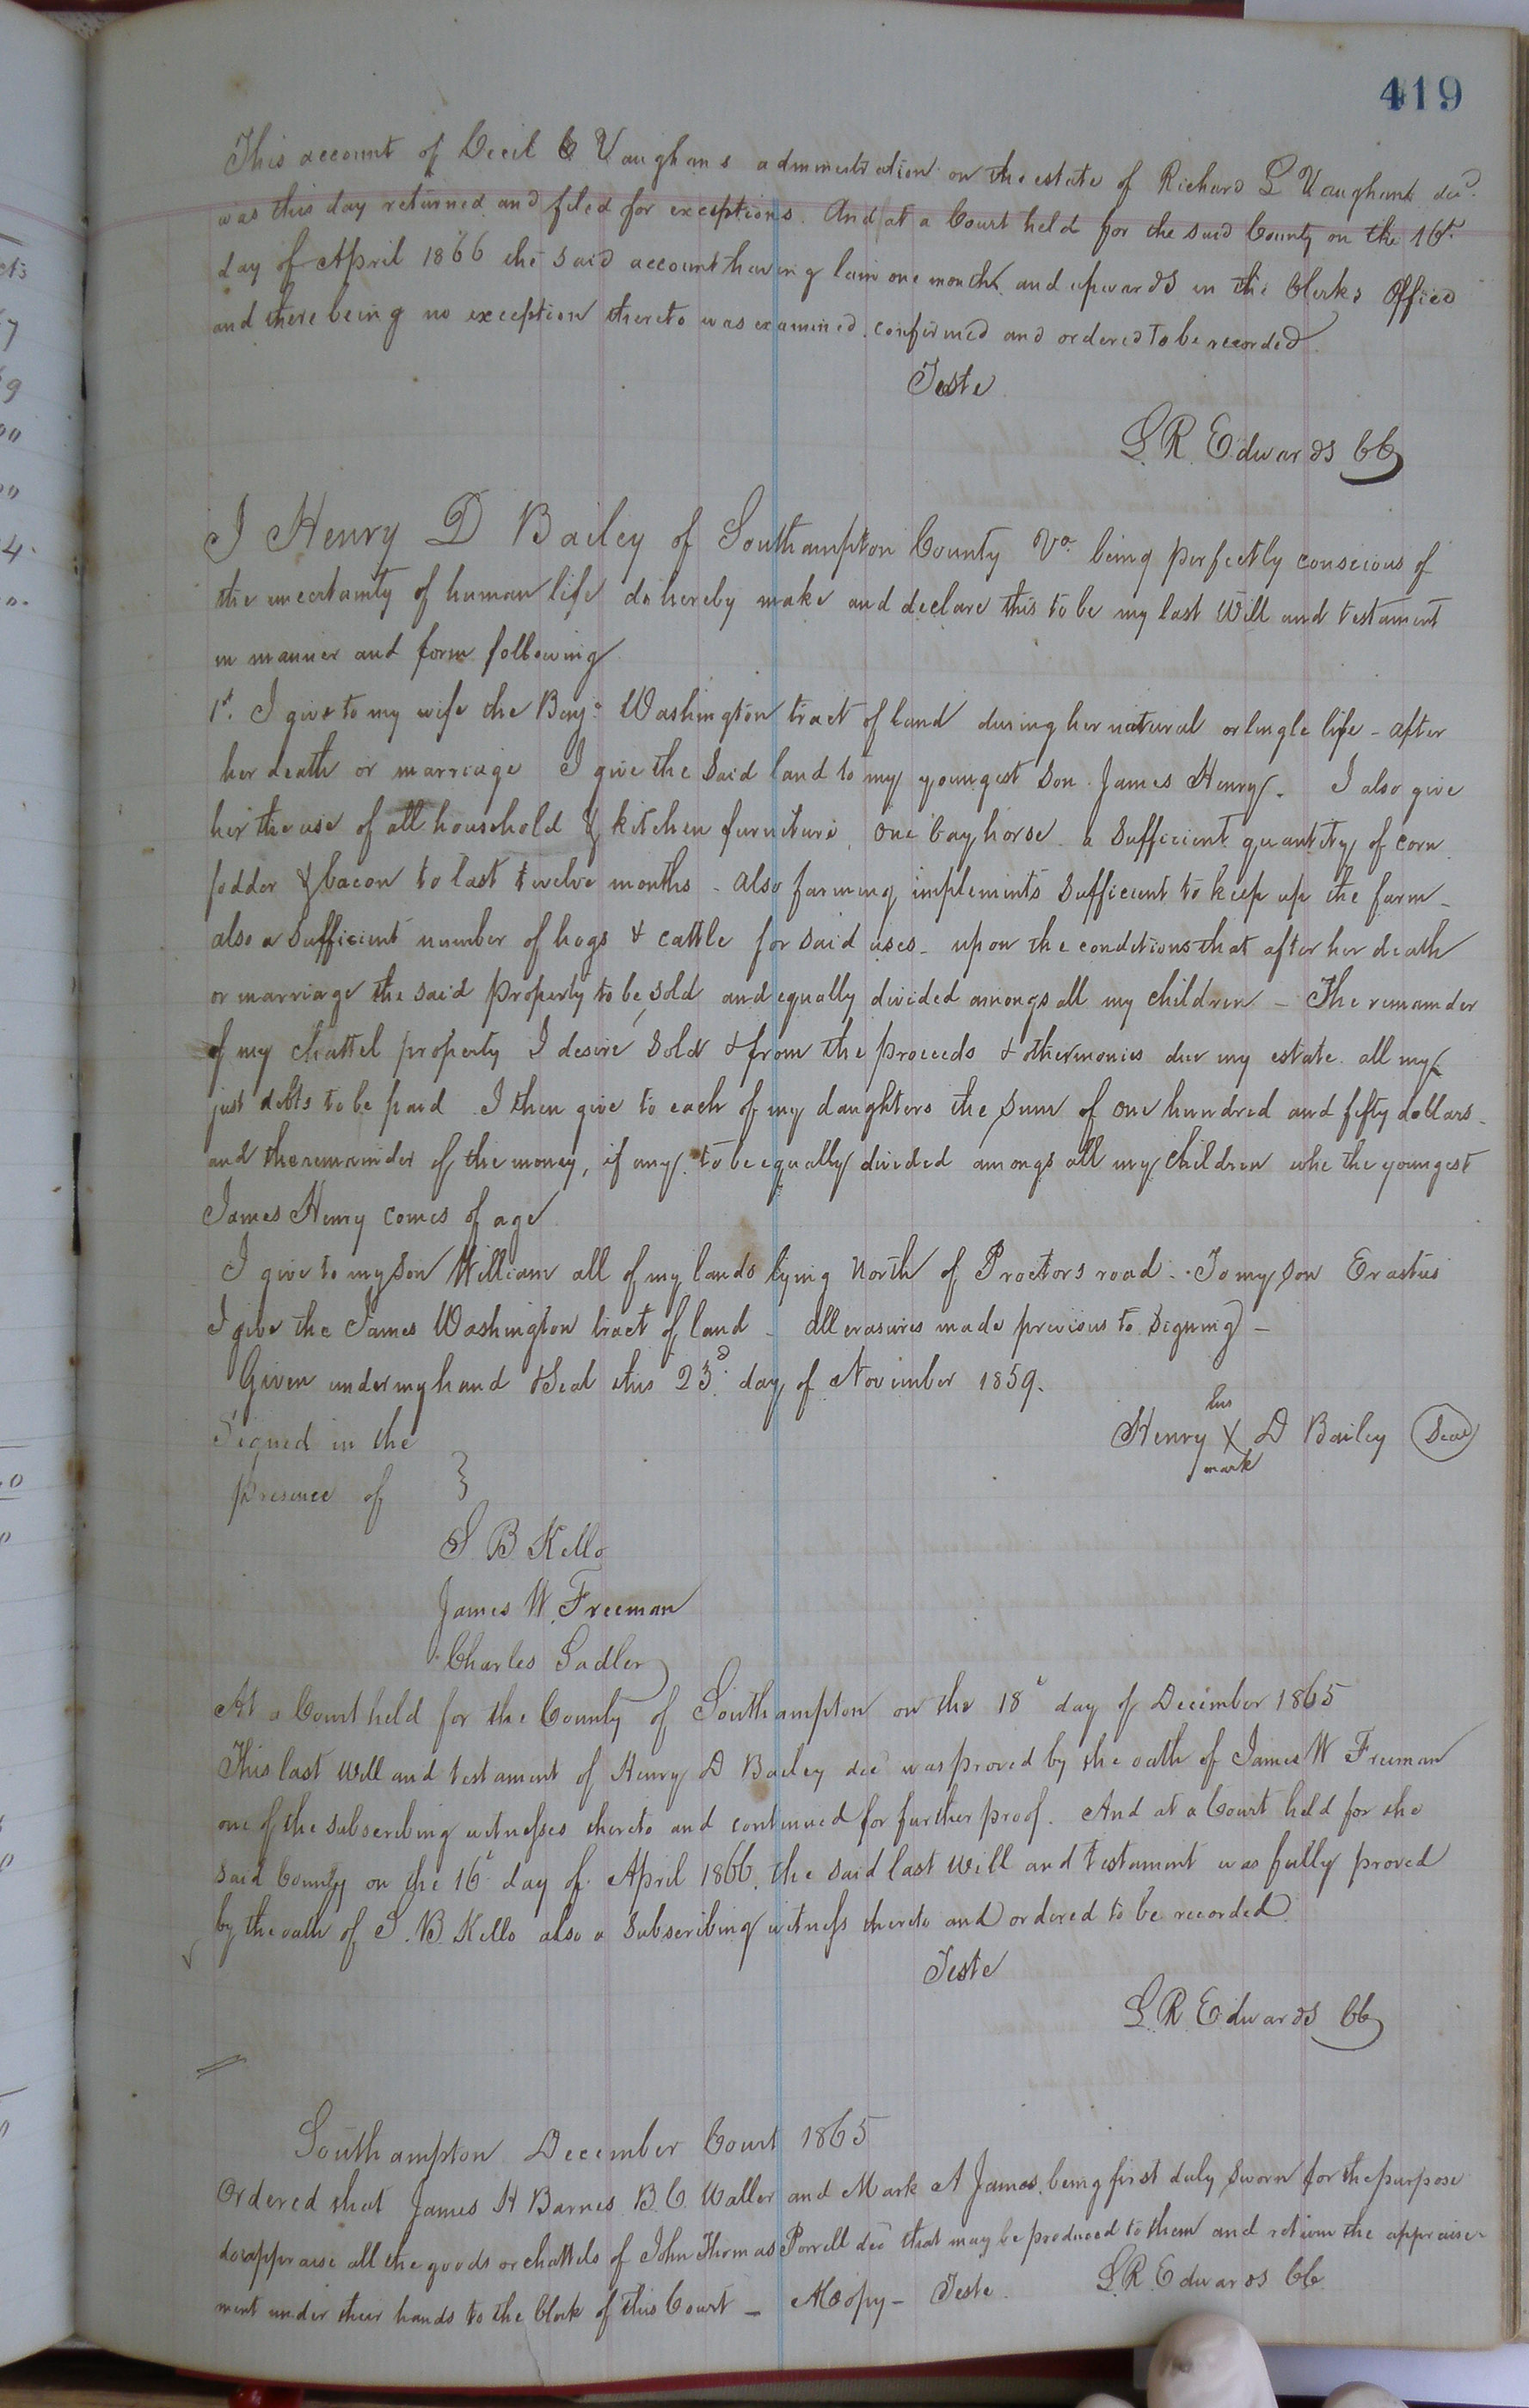 419
This account of Cecil C Vaughans administration on the estate of Richard L Vaughan decd.
was this day returned and filed for exceptions. And at a Court held for the said County on the 16th
day of April 1866 the said account having lain one month and upwards in the Clerks Office
and there being no exception thereto was examined confirmed and ordered to be recorded
Teste
L. R. Edwards CC
I Henry D Bailey of Southampton County Va. being perfectly conscious of
the uncertainty of human life do hereby make and declare this to be my last Will and testament
in manner and form following
1st. I give to my wife the Benja. Washington tract of land during her natural or single life - after
her death or marriage I give the said land to my youngest son James Henry. I also give
her the use of all household & kitchen furniture, one bay horse a sufficient quantity of corn
fodder & bacon to last twelve months - also farming implements sufficient to keep up the farm -
also a sufficient number of hogs & cattle for said uses - upon the conditions that after her death
or marriage the said property to be sold and equally divided amongs all my children - The remainder
of my chattel property I desire sold & from the proceeds & other monies due my estate all my
just debts to be paid I then give to each of my daughters the sum of one hundred and fifty dollars -
and the remainder of the money, if any, to be equally divided amongs all my children whe the youngest
James Henry comes of age
I give to my son William all of my lands lying North of Proctors road - To my son Erastus
I give the James Washington tract of land - all erasures made previous to signing -
Given under my hand & Seal this 23d. day of November 1859.
Signed in the
presence of }
his
Henry X D Bailey Seal
mark
S B Kello
James W. Freeman
Charles Sadler
At a Court held for the County of Southampton on the 18t day of December 1865
This last Will and testament of Henry D Bailey decd was proved by the oath of James W Freeman
one of the subscribing witnesses thereto and continued for further proof. And at a Court held for the
said County on the 16t day of April 1866 the said last Will and testament was fully proved
by the oath of S. B. Kello also a subscribing witness thereto and ordered to be recorded
Teste
L. R. Edwards CC
Southampton December Court 1865
Ordered that James H Barnes B. C. Waller and Mark A James, being first duly sworn for the purpose
do appraise all the goods or chattels of John Thomas Porrell decd that may be produced to them and return the appraise-
ment under their hands to the Clerk of this Court - A Copy - Teste L. R. Edwards CC